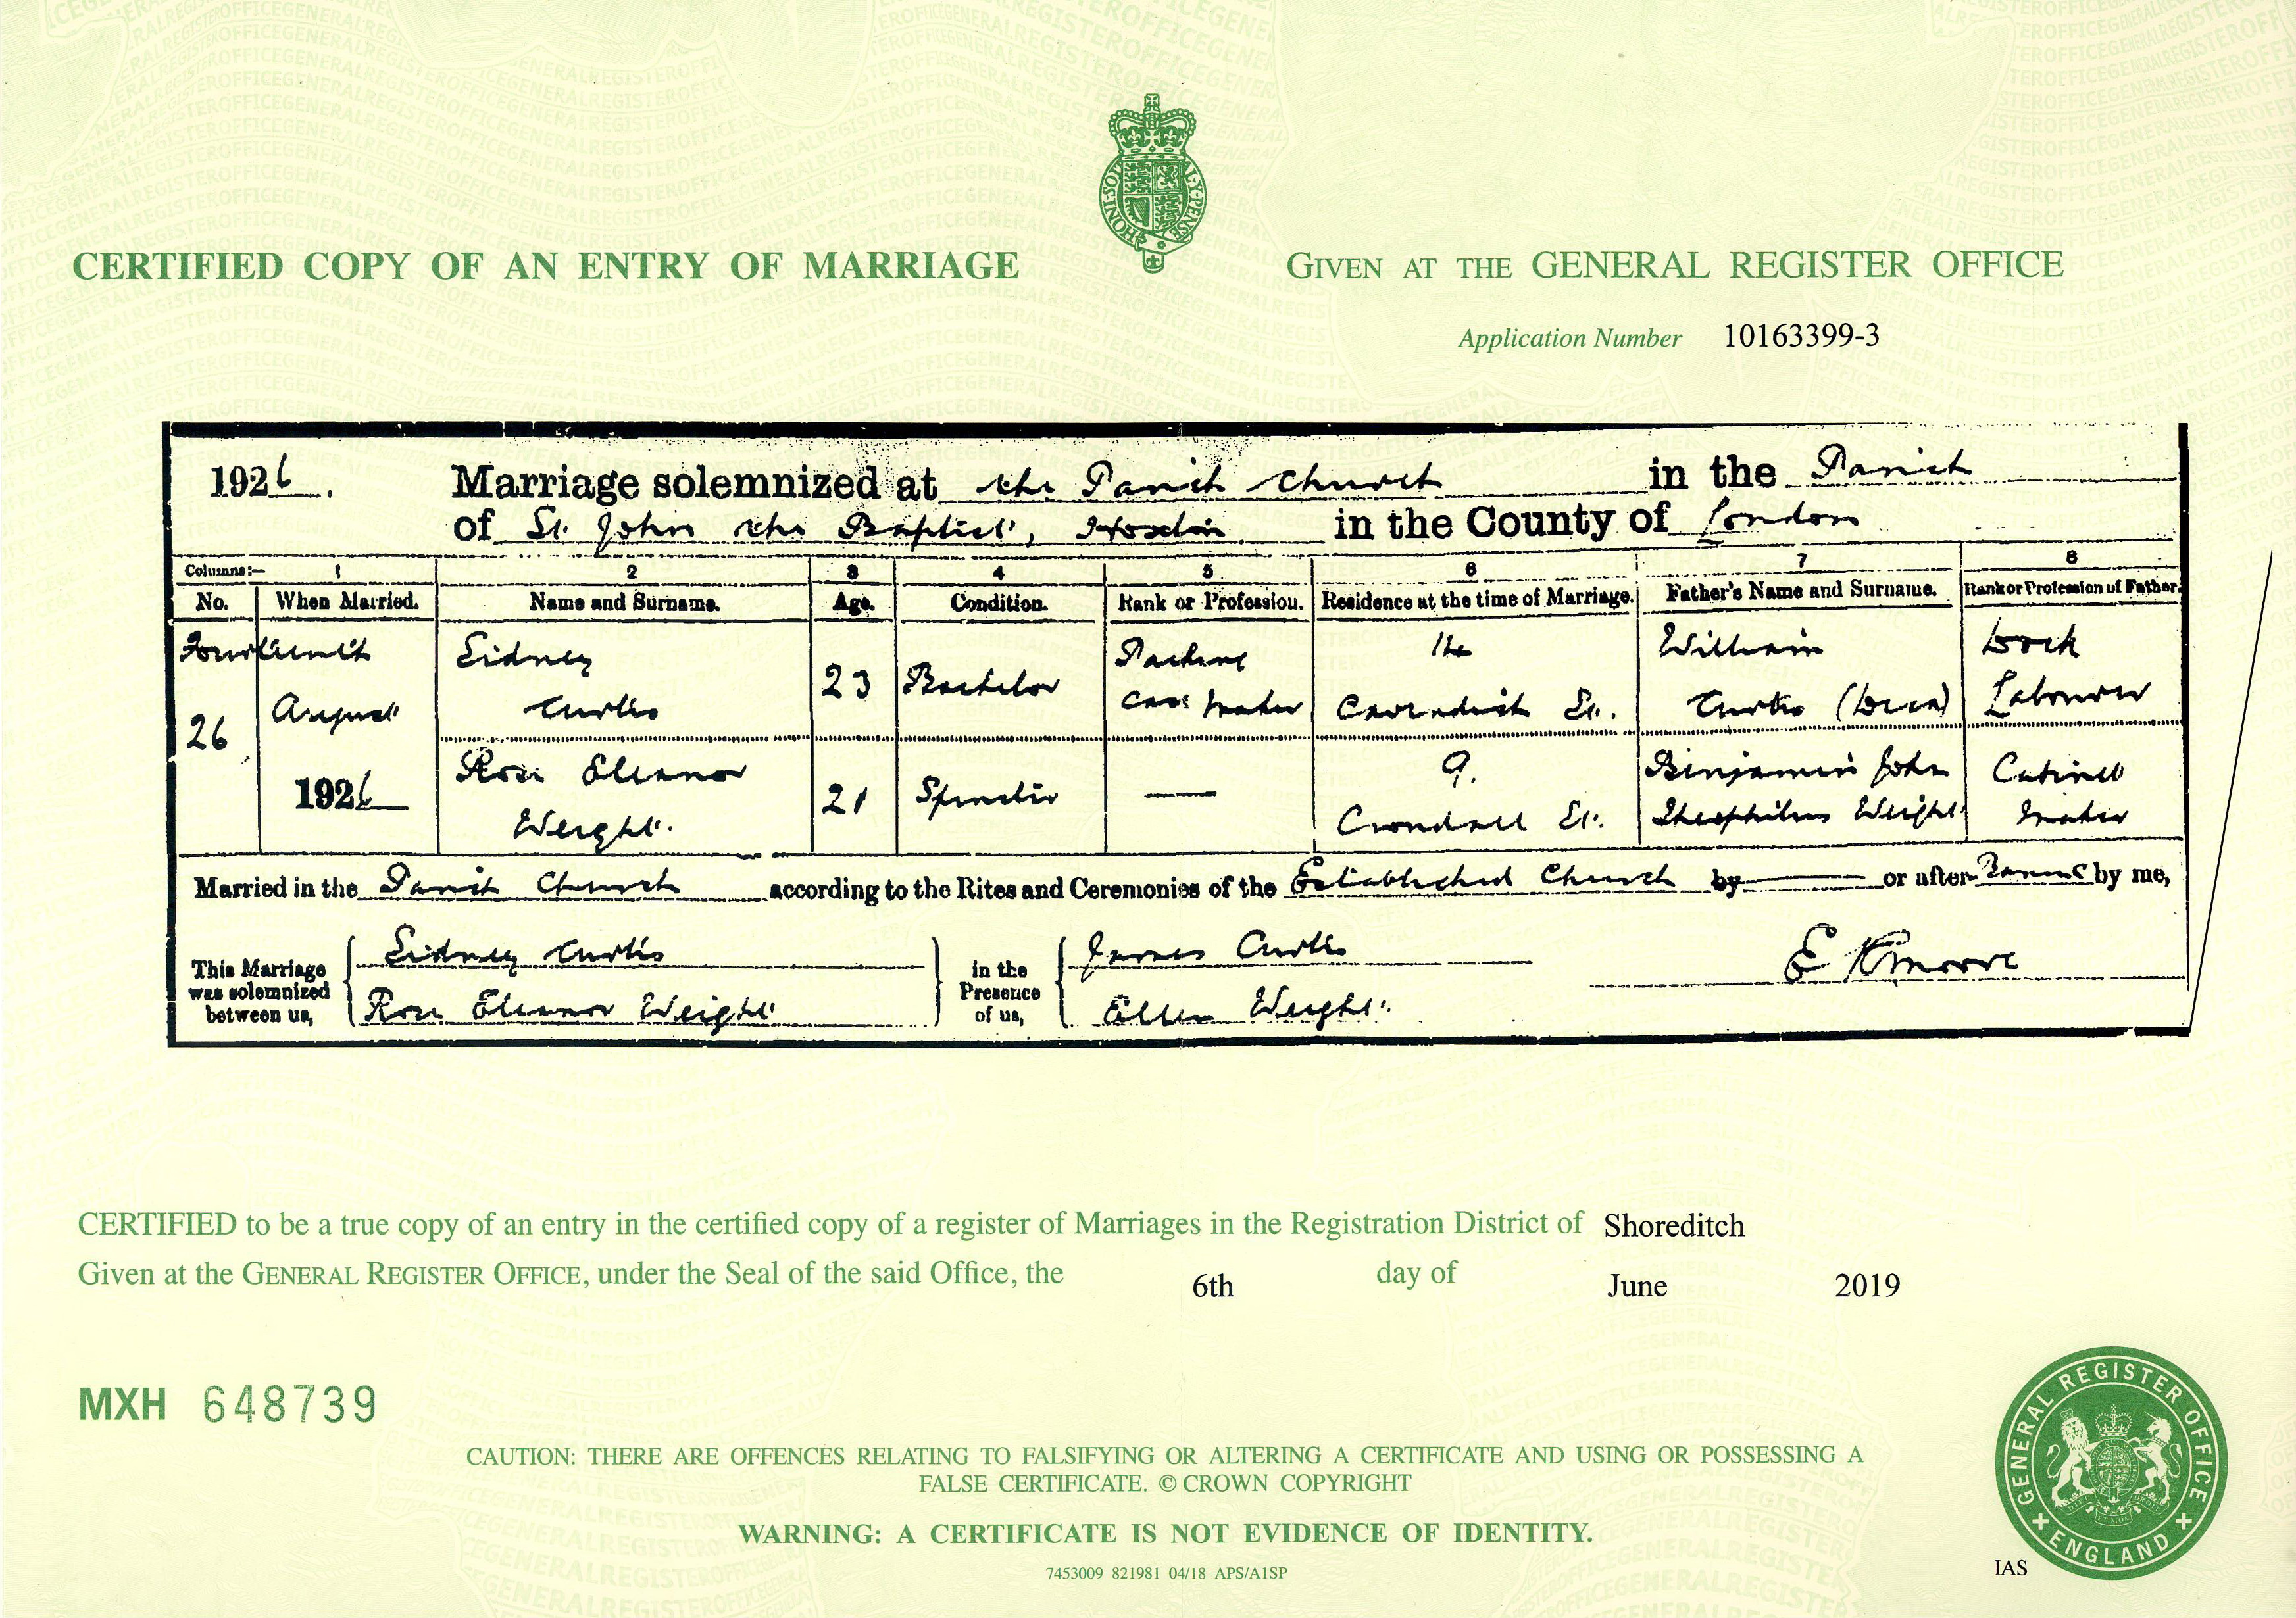 CERTIFIED COPY OF AN ENTRY OF MARRIAGE
GIVEN AT THE GENERAL REGISTER OFFICE
Application Number 10163399-3
1926. Marriage solemnized at the Parish Church in the Parish
of St. John the Baptist, Hoxton in the County of London
Columns:— 1 2 3 4 5 6 7 8
No. When Married. Name and Surname. Age. Condition. Rank or Profession. Residence at the time of Marriage. Father's Name and Surname. Rank or Profession of Father.
26
Fourteenth
August
1926
Sidney
Curtis
23
Bachelor
Packing
Case Maker
14
Cavendish St.
William
Curtis (Decd)
Dock
Labourer
Rose Eleanor
Weight.
21
Spinster
—
9.
Crondall St.
Benjamin John
Theophilus Weight
Cabinet
Maker
Married in the Parish Church according to the Rites and Ceremonies of the Established Church by — or after Banns by me,
This Marriage was solemnized between us,
Sidney Curtis
Rose Eleanor Weight
in the Presence of us,
James Curtis
Ellen Weight.
E K Moore
CERTIFIED to be a true copy of an entry in the certified copy of a register of Marriages in the Registration District of Shoreditch
Given at the GENERAL REGISTER OFFICE, under the Seal of the said Office, the 6th day of June 2019
MXH 648739
CAUTION: THERE ARE OFFENCES RELATING TO FALSIFYING OR ALTERING A CERTIFICATE AND USING OR POSSESSING A
FALSE CERTIFICATE. © CROWN COPYRIGHT
WARNING: A CERTIFICATE IS NOT EVIDENCE OF IDENTITY.
7453009 821981 04/18 APS/A1SP
IAS
GENERAL REGISTER OFFICE
ENGLAND